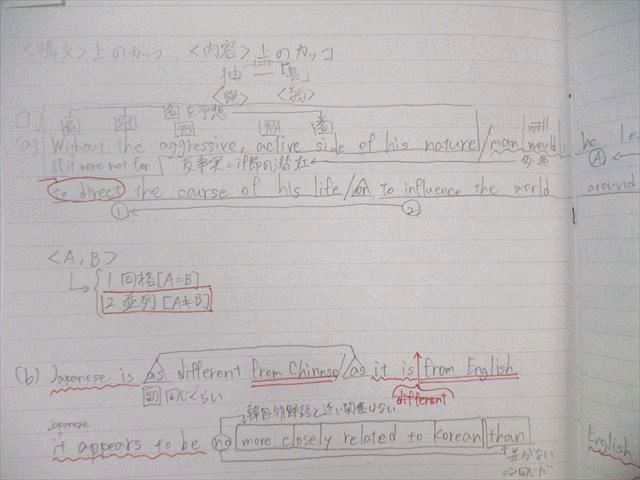 <構文>上のカッコ、<内容>上のカッコ
抽 ― 具
<強> <弱>
を予想
(a) Without the aggressive, active side of his nature / man would be
If it were not for 反事実=if節の潜在
Ⓐ
to direct the course of his life / or to influence the world around
① ②
<A, B>
1. 同格 [A=B]
2. 並列 [A≠B]
(b) Japanese is as different from Chinese / as it is from English.
副 同じくらい different
韓国朝鮮語と近い関係はない
Japanese
it appears to be no more closely related to Korean than
English
差がない
⇒同じだ